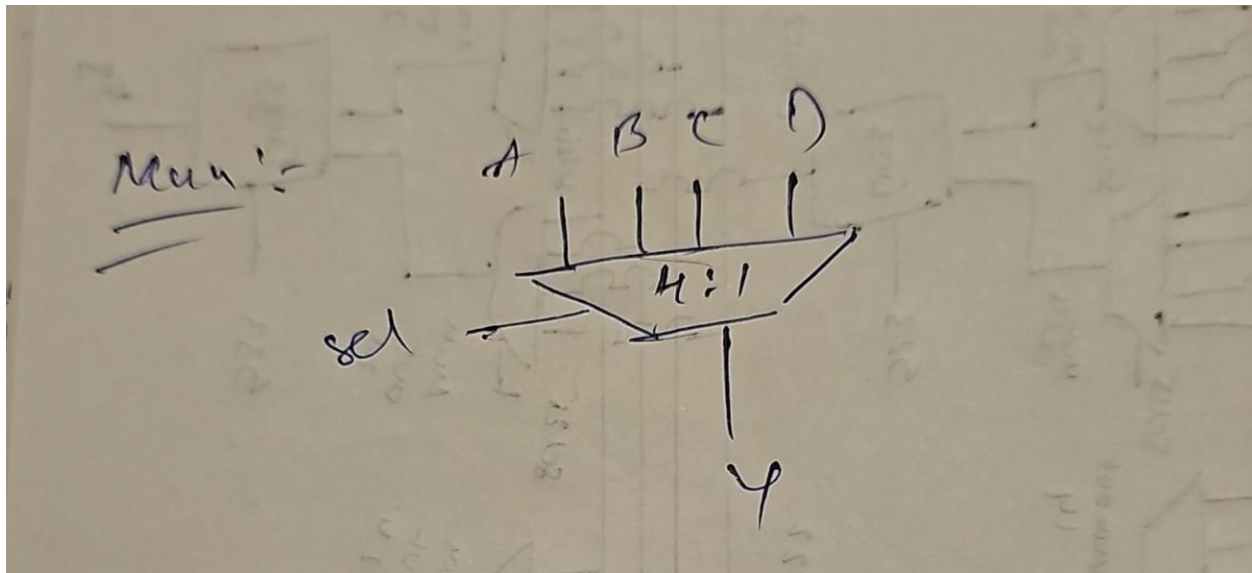 Mux :-
A B C D
4:1
sel
Y